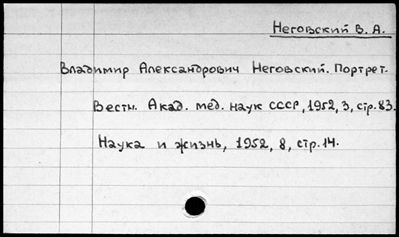 Неговский В. А.
Владимир Александрович Неговский. Портрет.
Вестн. Акад. мед. наук СССР, 1952, 3, стр. 83.
Наука и жизнь, 1952, 8, стр. 14.